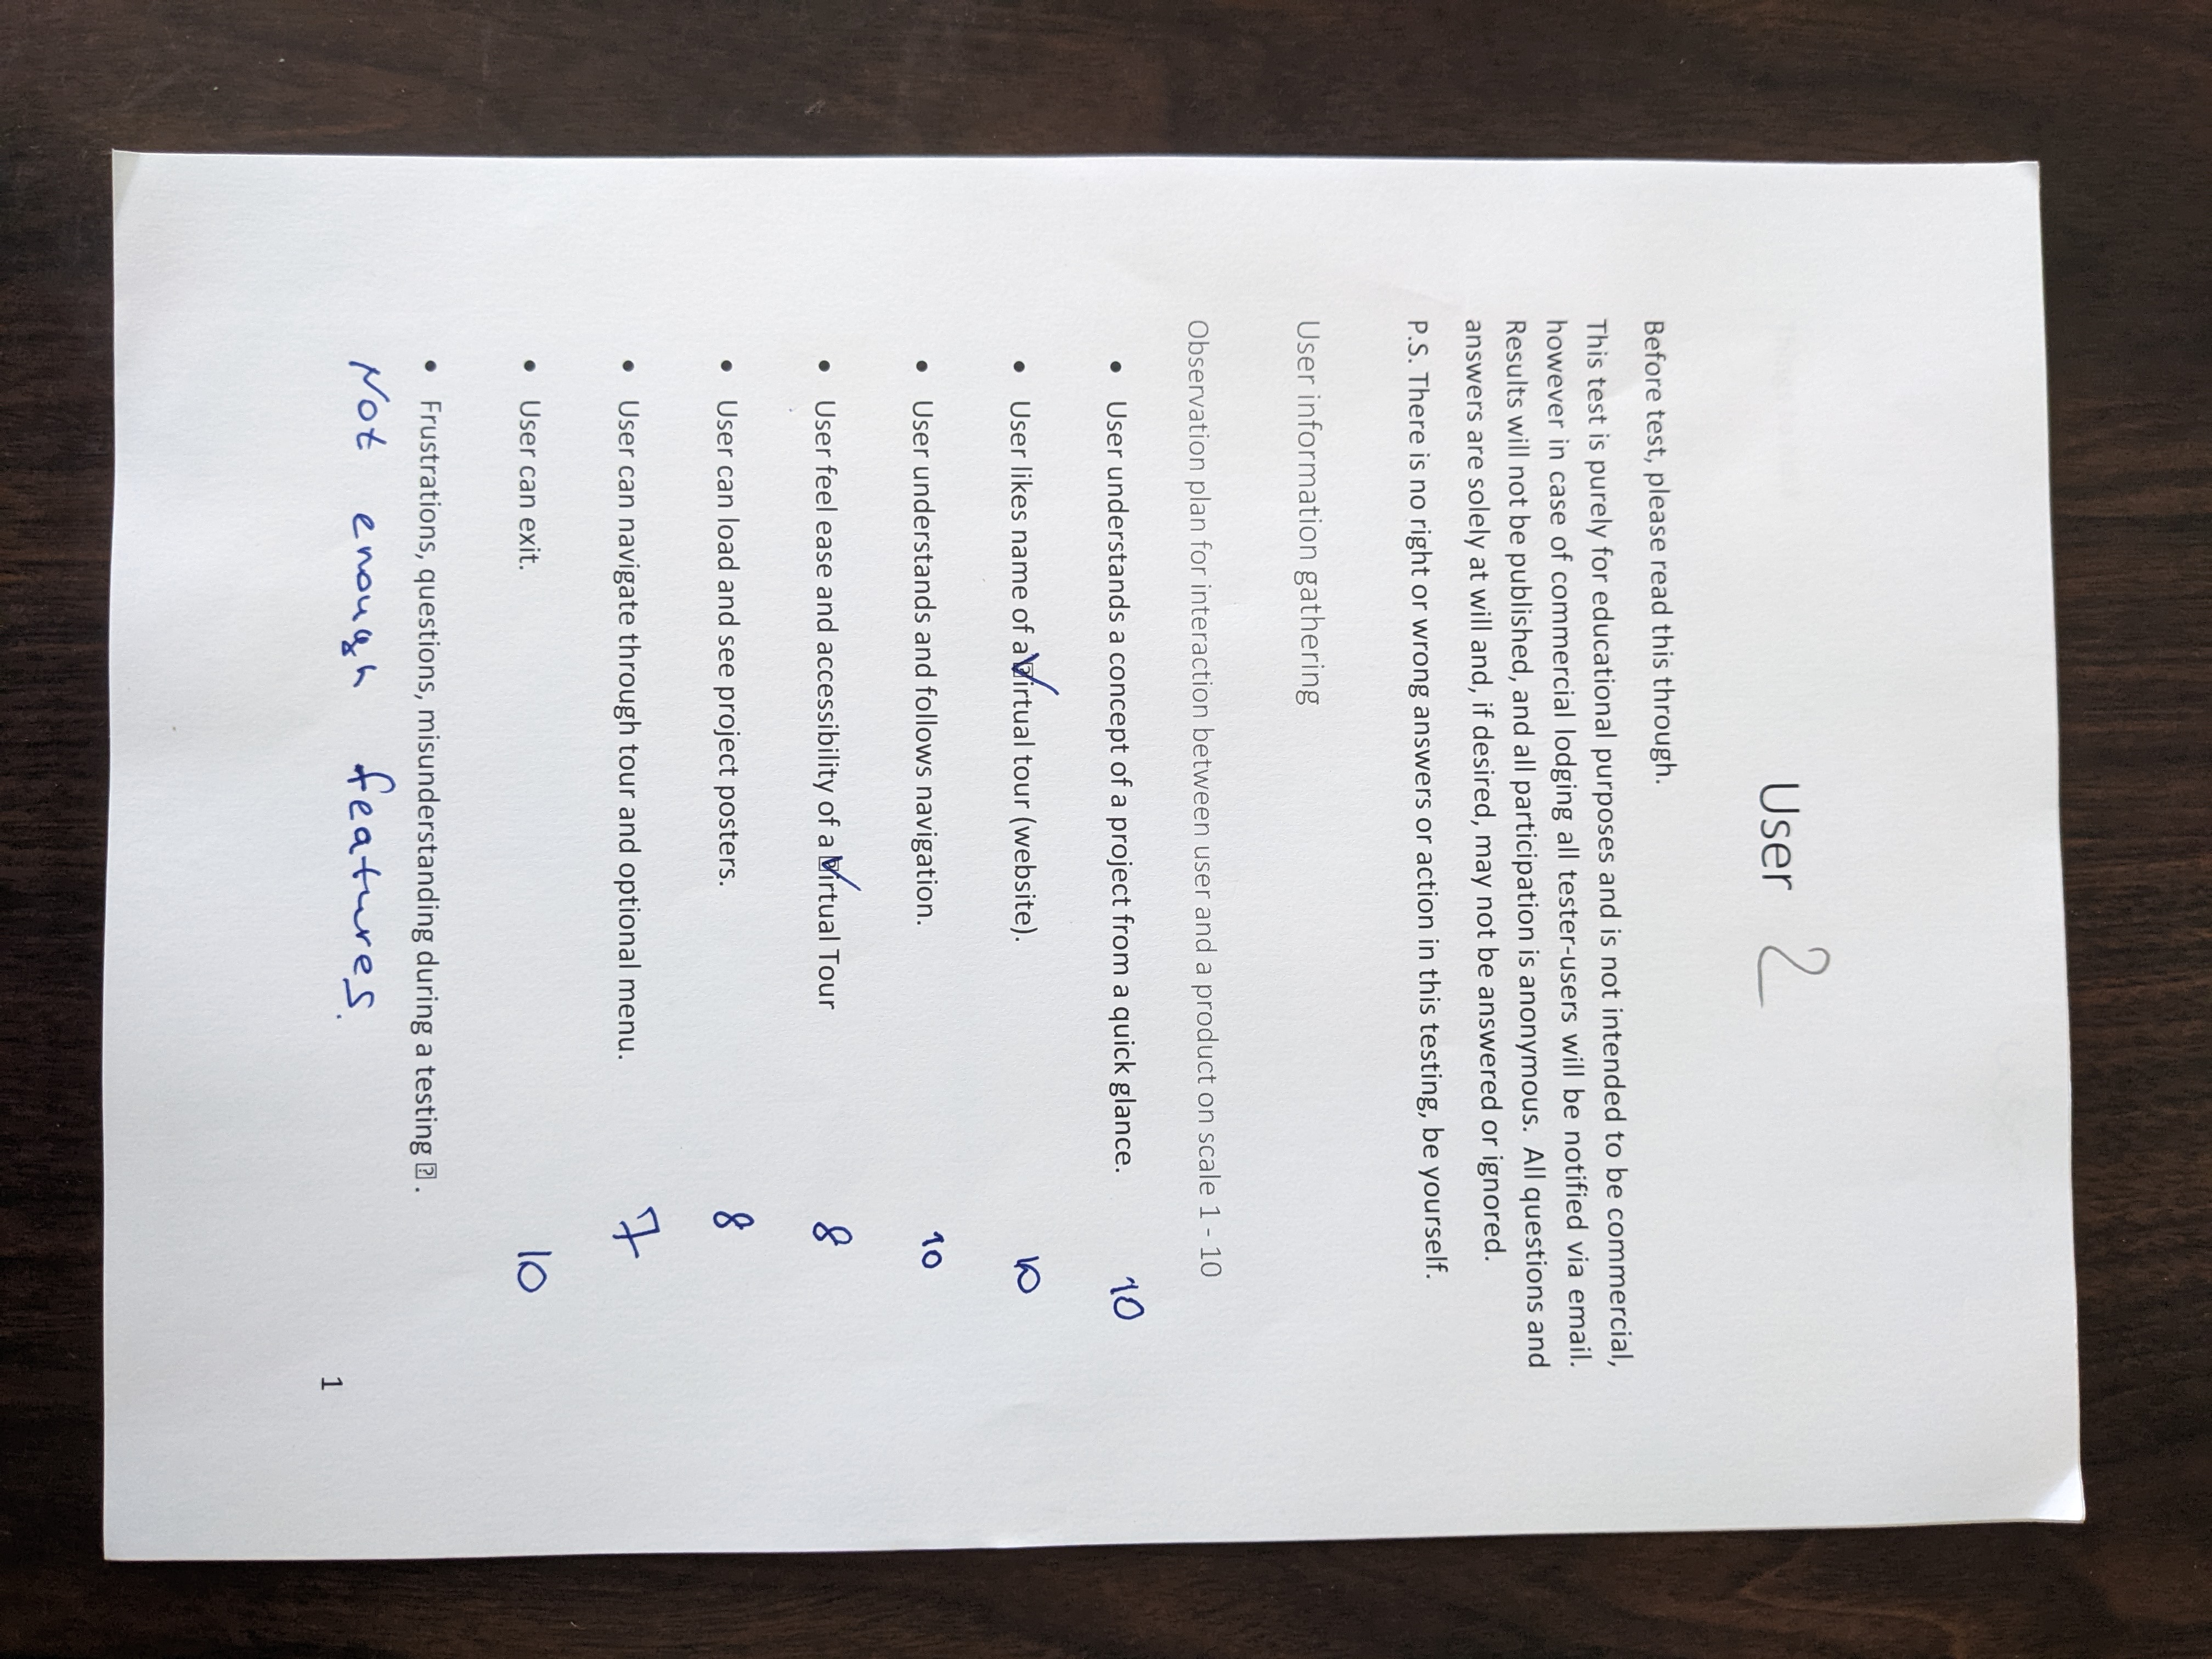 User 2
Before test, please read this through.
This test is purely for educational purposes and is not intended to be commercial,
however in case of commercial lodging all tester-users will be notified via email.
Results will not be published, and all participation is anonymous. All questions and
answers are solely at will and, if desired, may not be answered or ignored.
P.S. There is no right or wrong answers or action in this testing, be yourself.
User information gathering
Observation plan for interaction between user and a product on scale 1 - 10
• User understands a concept of a project from a quick glance. 10
• User likes name of a Virtual tour (website). 10
• User understands and follows navigation. 10
• User feel ease and accessibility of a Virtual Tour 8
• User can load and see project posters. 8
• User can navigate through tour and optional menu. 7
• User can exit. 10
• Frustrations, questions, misunderstanding during a testing ⍰ .
Not enough features.
1